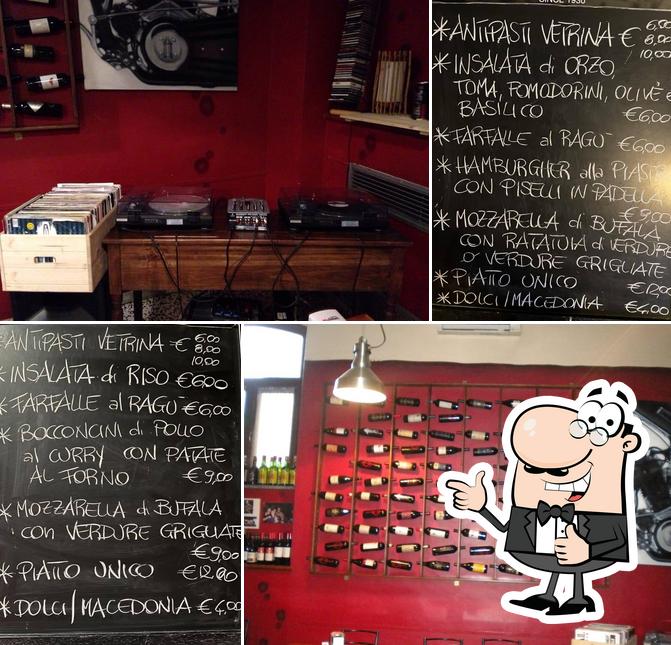 SINCE 1930
* ANTIPASTI VETRINA € 6,00
8,00
10,00
* INSALATA di ORZO,
TOMA, POMODORINI, OLIVE e
BASILICO €6,00
* FARFALLE al RAGU' €6,00
* HAMBURGHER alla PIAST
CON PISELLI IN PADELLA
€9,00
* MOZZARELLA di BUFALA
CON RATATUIA di VERDURE
O VERDURE GRIGLIATE
* PIATTO UNICO €12,00
* DOLCI/MACEDONIA €4,00
* ANTIPASTI VETRINA € 6,00
8,00
10,00
* INSALATA di RISO €6,00
* FARFALLE al RAGU' €6,00
* BOCCONCINI di POLLO
al CURRY CON PATATE
AL FORNO €9,00
* MOZZARELLA di BUFALA
con VERDURE GRIGLIATE
€9,00
* PIATTO UNICO €12,00
* DOLCI/MACEDONIA €4,00